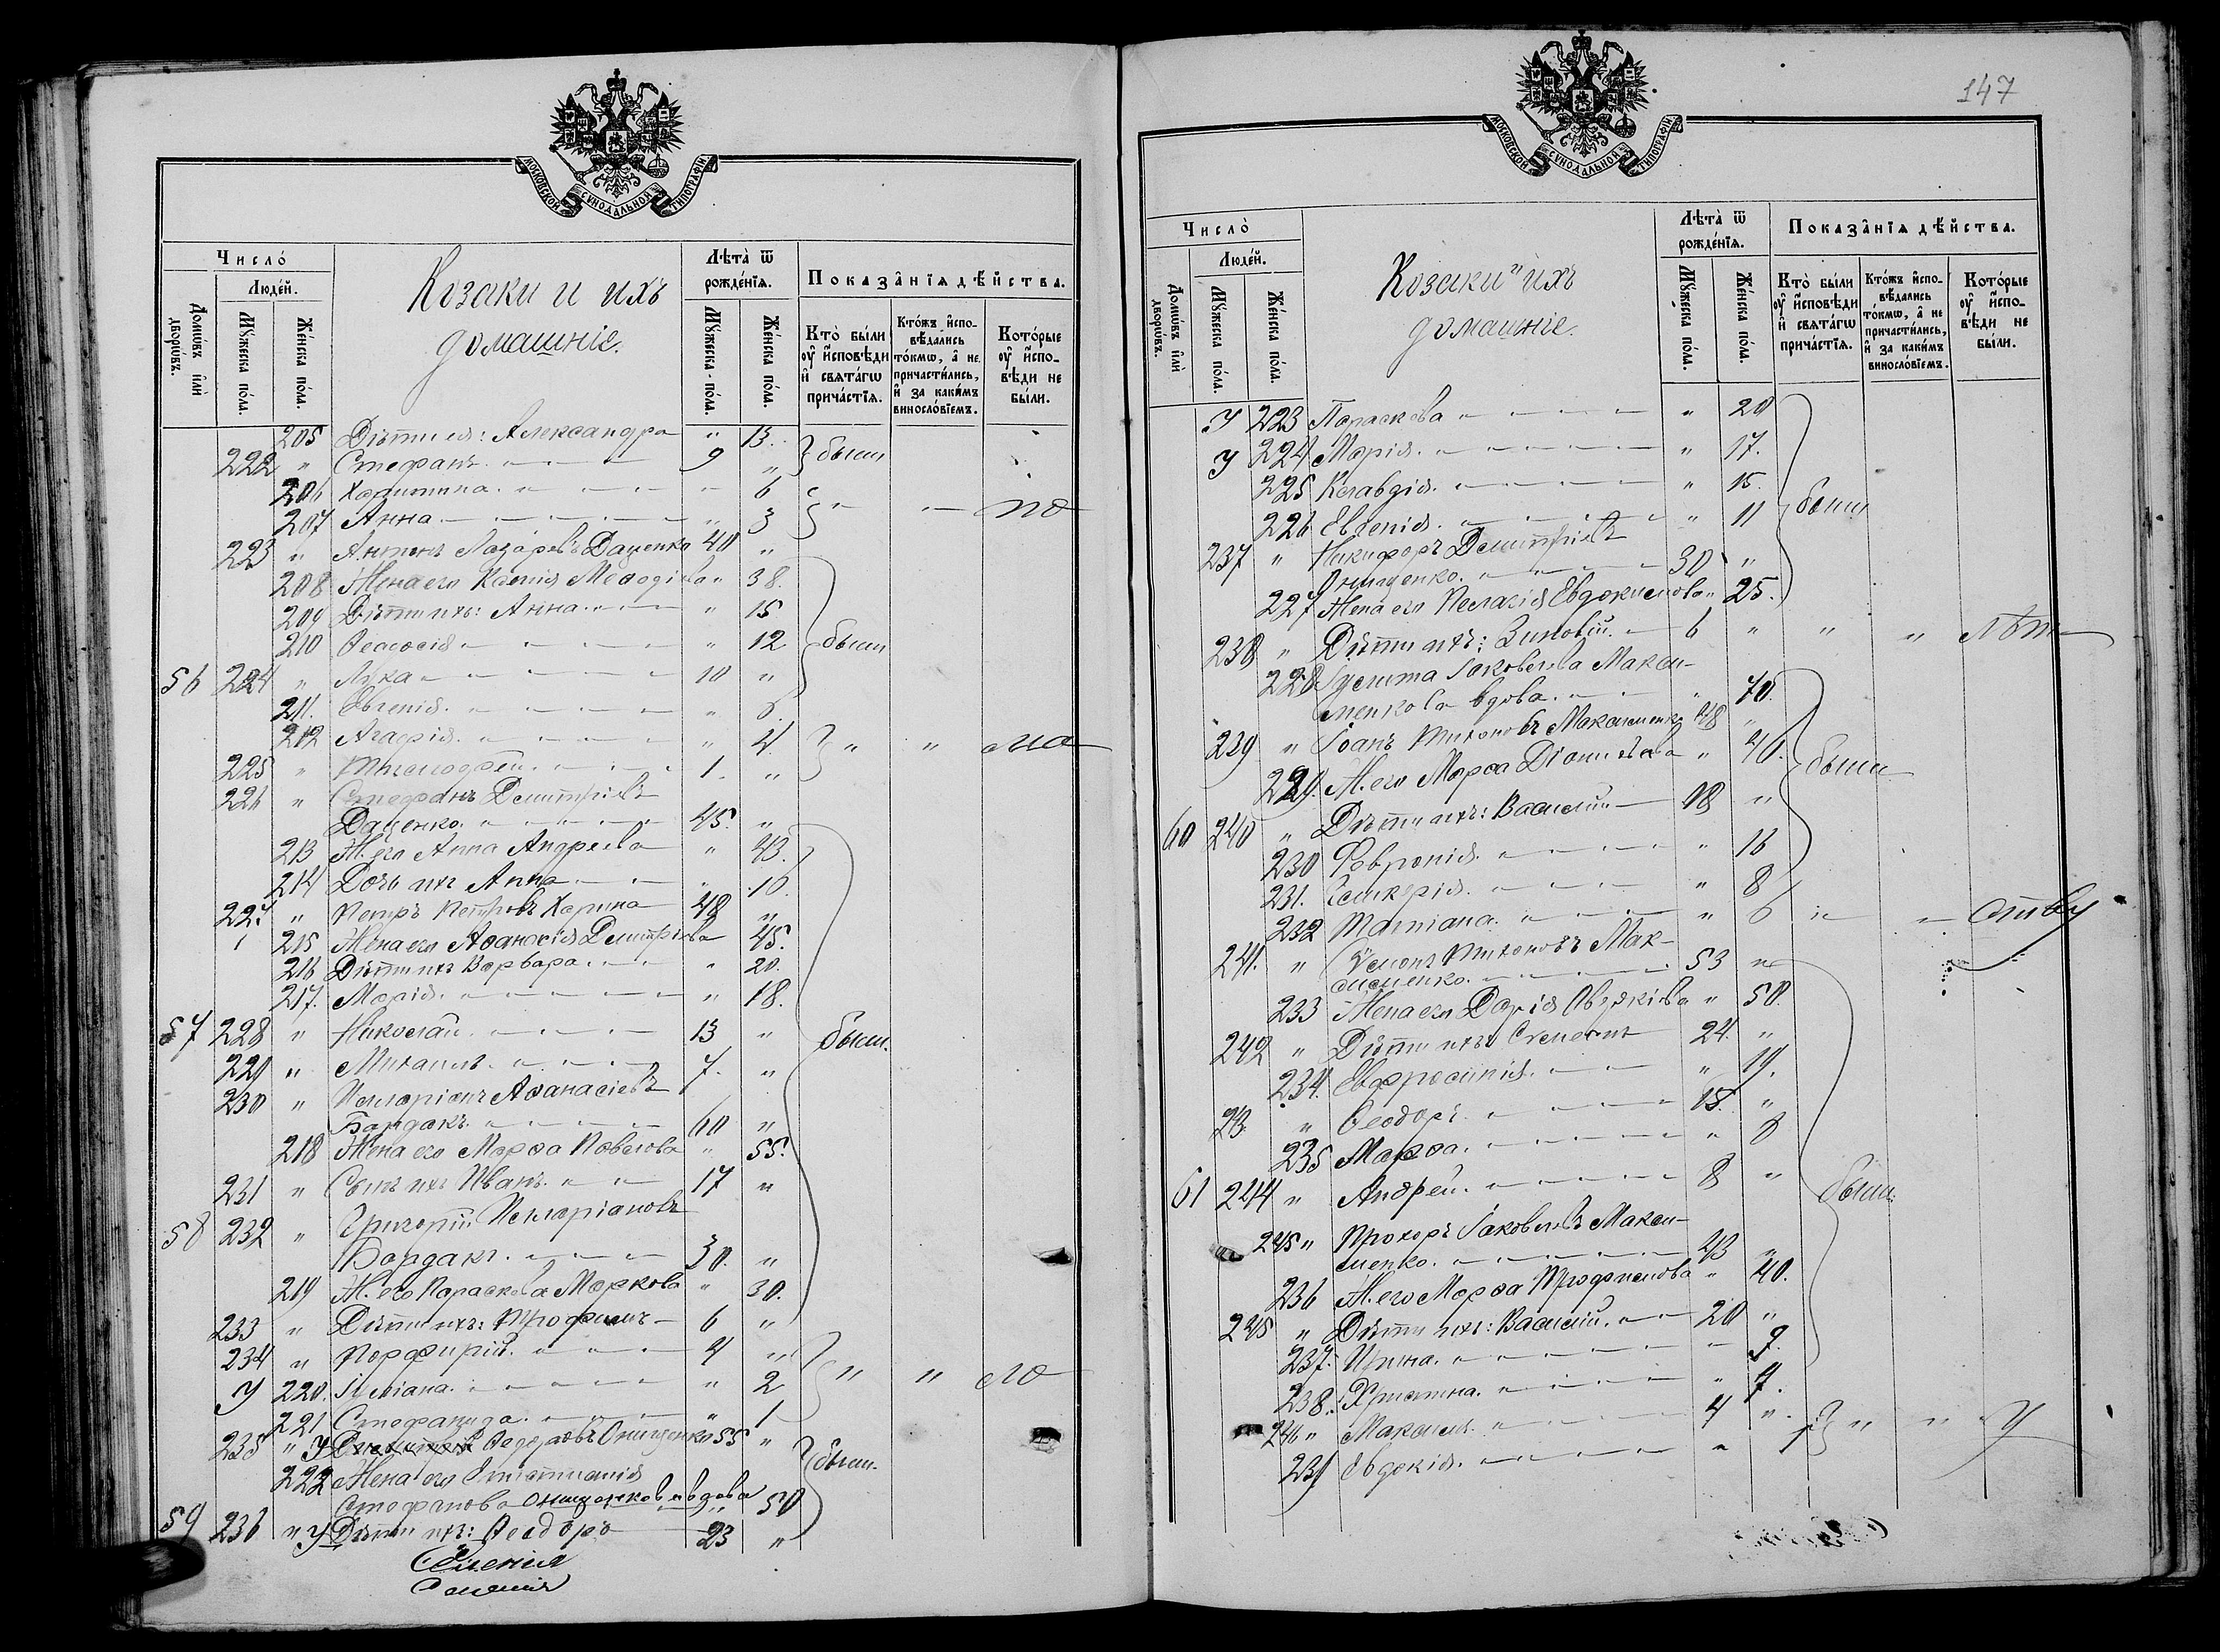 МОСКОВСКОЙ СѴНОДАЛЬНОЙ ТИПОГРАФІИ
Число̀
Людей.
Домѡвъ и҆лѝ дворѡвъ.
Мꙋжеска пола.
Женска пола.
Козаки и ихъ
домашніе.
Лѣта̀ ѿ рождéнїѧ.
Мꙋжеска пола.
Женска пола.
Показа̂нїѧ дѣ́йства.
Кто̀ были ᲂу҆ и҆сповѣди и҆ свѧтагѡ причастїѧ.
Кто́жъ и҆сповѣдались то́кмѡ, а҆ не причастились, и҆ за какимъ винословїемъ.
Кото́рые ᲂу҆ и҆сповѣди не были.
205 Дѣти ея: Александра " 13.
222 " Стефанъ 9 " были
206 Харитина. " 6
207 Анна " 3 " " по
223 " Антонъ Лазаревъ Даценко 40 "
208 Жена его Ксенія Меѳодіева " 38.
209 Дѣти ихъ: Анна " 15
210 Ѳеодосія " 12 были
56 224 " Лука 10 "
211. Евгенія. " 6.
212 Агафія. " 4. " " ма
225 " 1. "
226 " Стефанъ Димитріевъ
Даценко. 45. "
213 Ж. его Анна Андреева " 43.
214 Дочь ихъ Анна " 10.
227. " Петръ Петровъ Харина 48 "
215 Жена его Аѳанасія Димитріева 45.
216 Дѣти ихъ Варвара. " 20.
217. Марія. " 18.
57 228 " Николай 13 " были.
229 " Михаилъ. 7. "
230 " Иларіонъ Аѳанасіевъ
Бардакъ. 60 "
218 Жена его Марѳа Павлова " 55.
231 " Сынъ ихъ Иванъ. 17 "
58 232 " Григорій Иларіановъ
Бардакъ. 30. "
219 Ж. его Параскева Маркова " 30.
233 " Дѣти ихъ: Трофимъ 6 "
234 " Порфирій. 4 "
У 220. Іуліана. " 2 " " ло
221 Стефанида. " 1
235 " У Ѳедоровъ Онищенко 55 "
222 Жена его
Стефанова Онищенкова вдова " 50 были.
59 236 " У Дѣти ихъ: Ѳеодоръ 23 "
147
МОСКОВСКОЙ СѴНОДАЛЬНОЙ ТИПОГРАФІИ
Число̀
Людей.
Домѡвъ и҆лѝ дворѡвъ.
Мꙋжеска пола.
Женска пола.
Козаки и ихъ
домашніе.
Лѣта̀ ѿ рождéнїѧ.
Мꙋжеска пола.
Женска пола.
Показа̂нїѧ дѣ́йства.
Кто̀ были ᲂу҆ и҆сповѣди и҆ свѧтагѡ причастїѧ.
Кто́жъ и҆сповѣдались то́кмѡ, а҆ не причастились, и҆ за какимъ винословїемъ.
Кото́рые ᲂу҆ и҆сповѣди не были.
У 223 Параскева " 20
У 224 Марія. " 17.
225 Клавдія. " 15.
226 Евгенія. " 11 были
237 " Никифоръ Димитріевъ
Онищенко. 30 "
227 Жена его Пелагія Евдокимова " 25.
238 " Дѣти ихъ: Зиновій. 6 " " " лѣт
228 Іулита Іаковлева Макси-
менкова вдова. " 70.
239 " Іоанъ Тихоновъ Максименко 48 "
229. Ж. его Марѳа Діонисіева " 46. были
60 240 " Дѣти ихъ: Василій 18 "
230 Февронія. " 16
231. Гликерія. " 8
232 Татіана. " 6 " " ству
241. " Тихоновъ Мак-
сименко. 53 "
233 Жена его Дарія " 50.
242 " Дѣти ихъ: 24. "
234. Евфросинія. " 19.
23 " Ѳеодоръ. 15. "
235 Марѳа. " 8
61 244 " Андрей. 8 " были.
245 " Прохоръ Іаковлевъ Макси-
менко. 43 "
236 Ж. его Марѳа Трофимова " 40.
245 " Дѣти ихъ: Василій. 20 "
237. " 9.
238. Христина. " 7.
246 " Максимъ. 4 " " " У
239 Евдокія. " 1